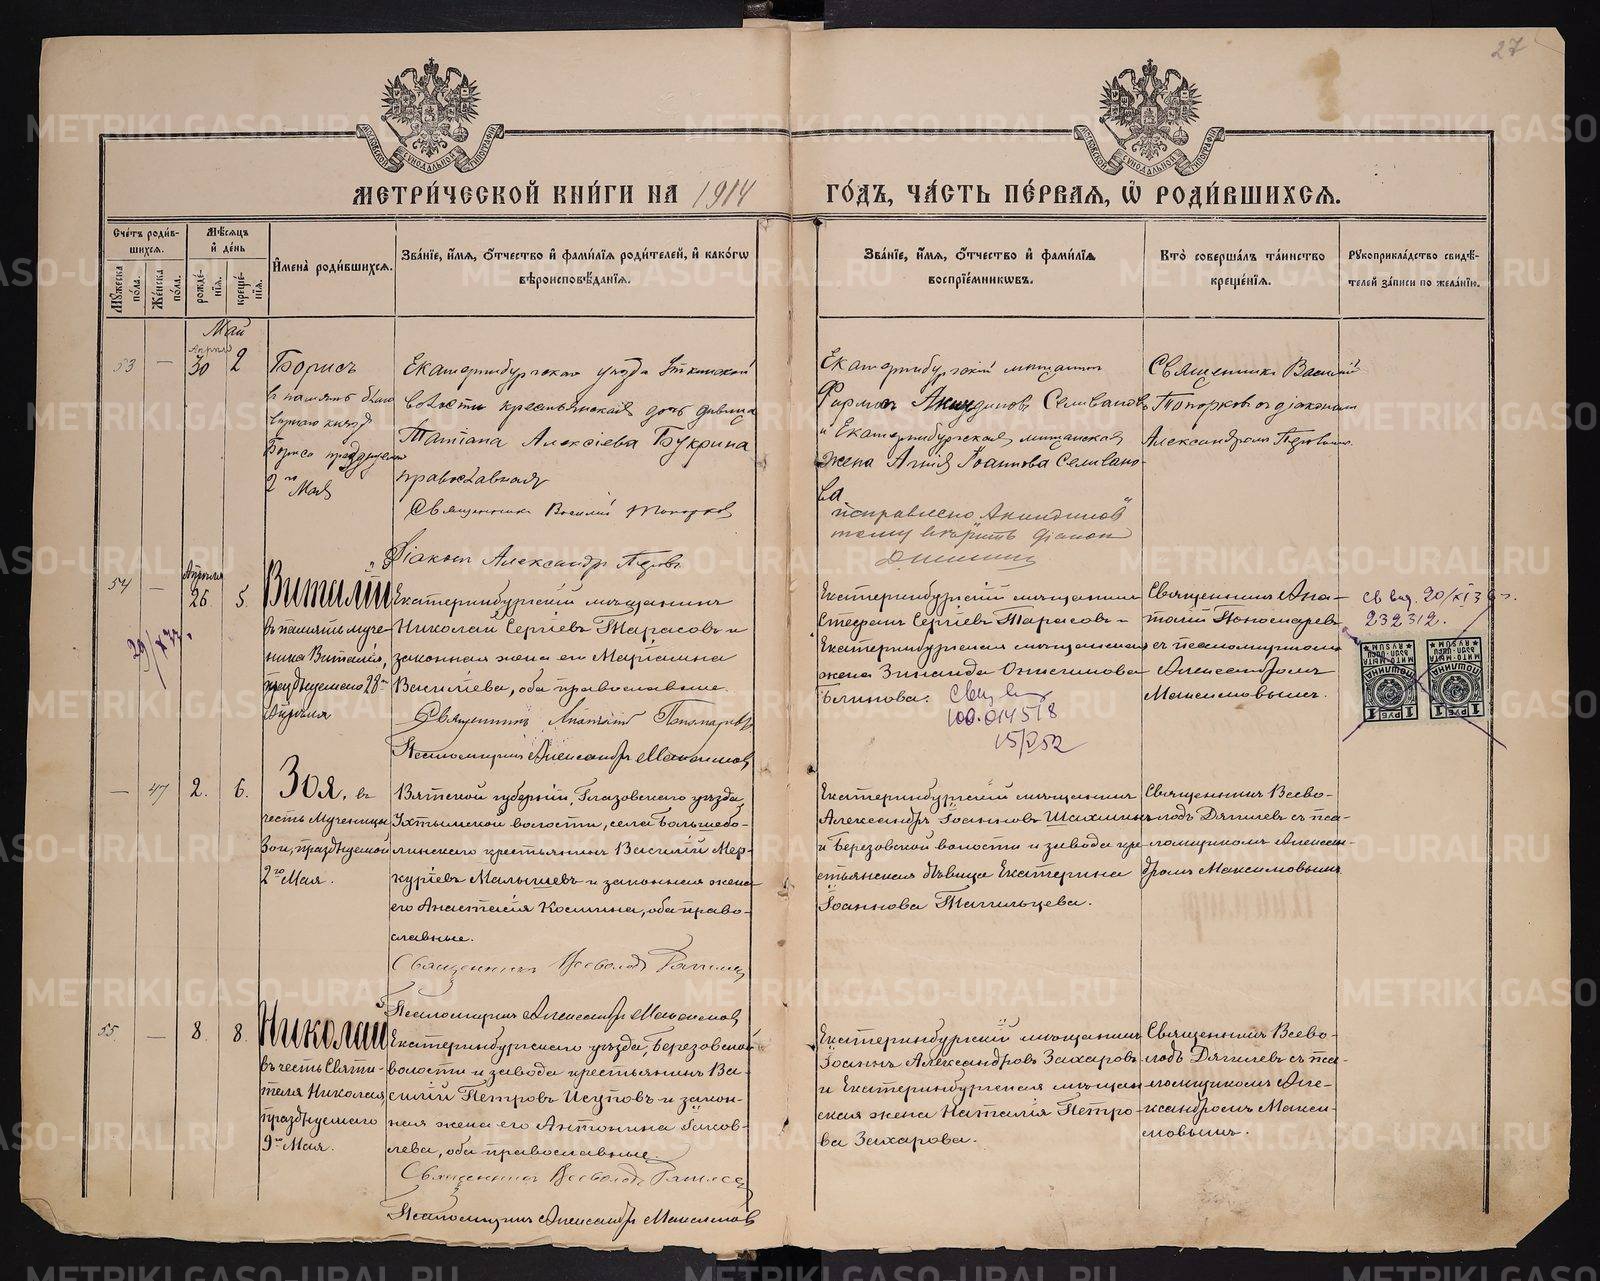 27
МЕТРИ́ЧЕСКОЙ КНИ́ГИ НА 1914 ГО́ДЪ, ЧА́СТЬ ПЕ́РВАЯ, Ѽ РОДИ́ВШИХСЯ.
Сче́тъ роди́в-
шихся.
Му́жеска по́ла.
Же́нска по́ла.
Мѣ́сяцъ
и҆ де́нь
рожде́-
нїѧ.
креще́-
нїѧ.
И҆мена̀ роди́вшихся.
Зва́нїе, и҆́мѧ, ѻ҆́тчество и҆ фами́лїѧ роди́телей, и҆ како́гѡ
вѣроисповѣ́данїѧ.
Зва́нїе, и҆́мѧ, ѻ҆́тчество и҆ фами́лїѧ
воспрїе́мникѡвъ.
Кто̀ соверша́лъ та́инство
креще́нїѧ.
Рꙋкоприкла́дство свидѣ́-
телей за́писи по жела́нїю.
Май
53
—
Апрѣля
30
2
Борисъ
въ память благо
вѣрнаго князя
Бориса празднуем
2го Мая
Екатеринбургскаго уѣзда Уткинской
волости крестьянская дочь девица
Татіана Алексіева Букрина
православная
Священникъ Василій Топорков
Діаконъ Александръ
Екатеринбургскій мѣщанинъ
Фирмосъ Акиндиновъ Селивановъ
и Екатеринбургская мѣщанская
жена Агнія Іоаннова Селивано-
ва
исправлено Акиндинов
тому вѣрить діакон
Священникъ Василій
Топорковъ съ діакономъ
Александромъ
54
—
Апрѣля
26
5.
29/X 77.
Виталій
въ память муче-
ника Виталія,
празднуемаго 28го
Апрѣля
Екатеринбургскій мѣщанинъ
Николай Сергіевъ Тарасовъ и
законная жена его Маріамна
Васильева, оба православные.
Священникъ Анатолій Пономаревъ
Псаломщикъ Александръ Максимовъ
Екатеринбургскій мѣщанинъ
Стефанъ Сергіевъ Тарасовъ и
Екатеринбургская мѣщанская
жена Зинаида Онисимова
Блинова.
100.014518
15/V 52
Священникъ Ана-
толій Пономаревъ
съ псаломщикомъ
Александромъ
Максимовымъ.
св выд. 20/XI 36 г.
232312.
ПОШЛИНА
1 РУБ 1
ПОШЛИНА
1 РУБ 1
—
47
2.
6.
Зоя, въ
честь Мученицы
Зои, празднуемой
2го Мая.
Вятской губерніи, Глазовскаго уѣзда,
Ухтымской волости, села Большебо-
линскаго крестьянинъ Василій Мер-
куріевъ Малышевъ и законная жена
его Анастасія Косьмина, оба право-
славные.
Священникъ Всеволодъ Дягилевъ
Псаломщикъ Александръ Максимовъ
Екатеринбургскій мѣщанинъ
Александръ Іоанновъ Шахминъ
и Березовской волости и завода кре-
стьянская дѣвица Екатерина
Іоаннова Тагильцева.
Священникъ Всево-
лодъ Дягилевъ съ пса-
ломщикомъ Алексан-
дромъ Максимовымъ
55
—
8.
8.
Николай
въ честь Святи-
теля Николая,
празднуемаго
9го Мая.
Екатеринбургскаго уѣзда, Березовской
волости и завода крестьянинъ Ва-
силій Петровъ Исуповъ и закон-
ная жена его Антонина Іаков-
лева, оба православные.
Священникъ Всеволодъ Дягилевъ
Псаломщикъ Александръ Максимовъ
Екатеринбургскій мѣщанинъ
Іоаннъ Александровъ Захаровъ
и Екатеринбургская мѣщан-
ская жена Наталія Петро-
ва Захарова.
Священникъ Всево-
лодъ Дягилевъ съ пса-
ломщикомъ Але-
ксандромъ Макси-
мовымъ.
METRIKI.GASO-URAL.RU